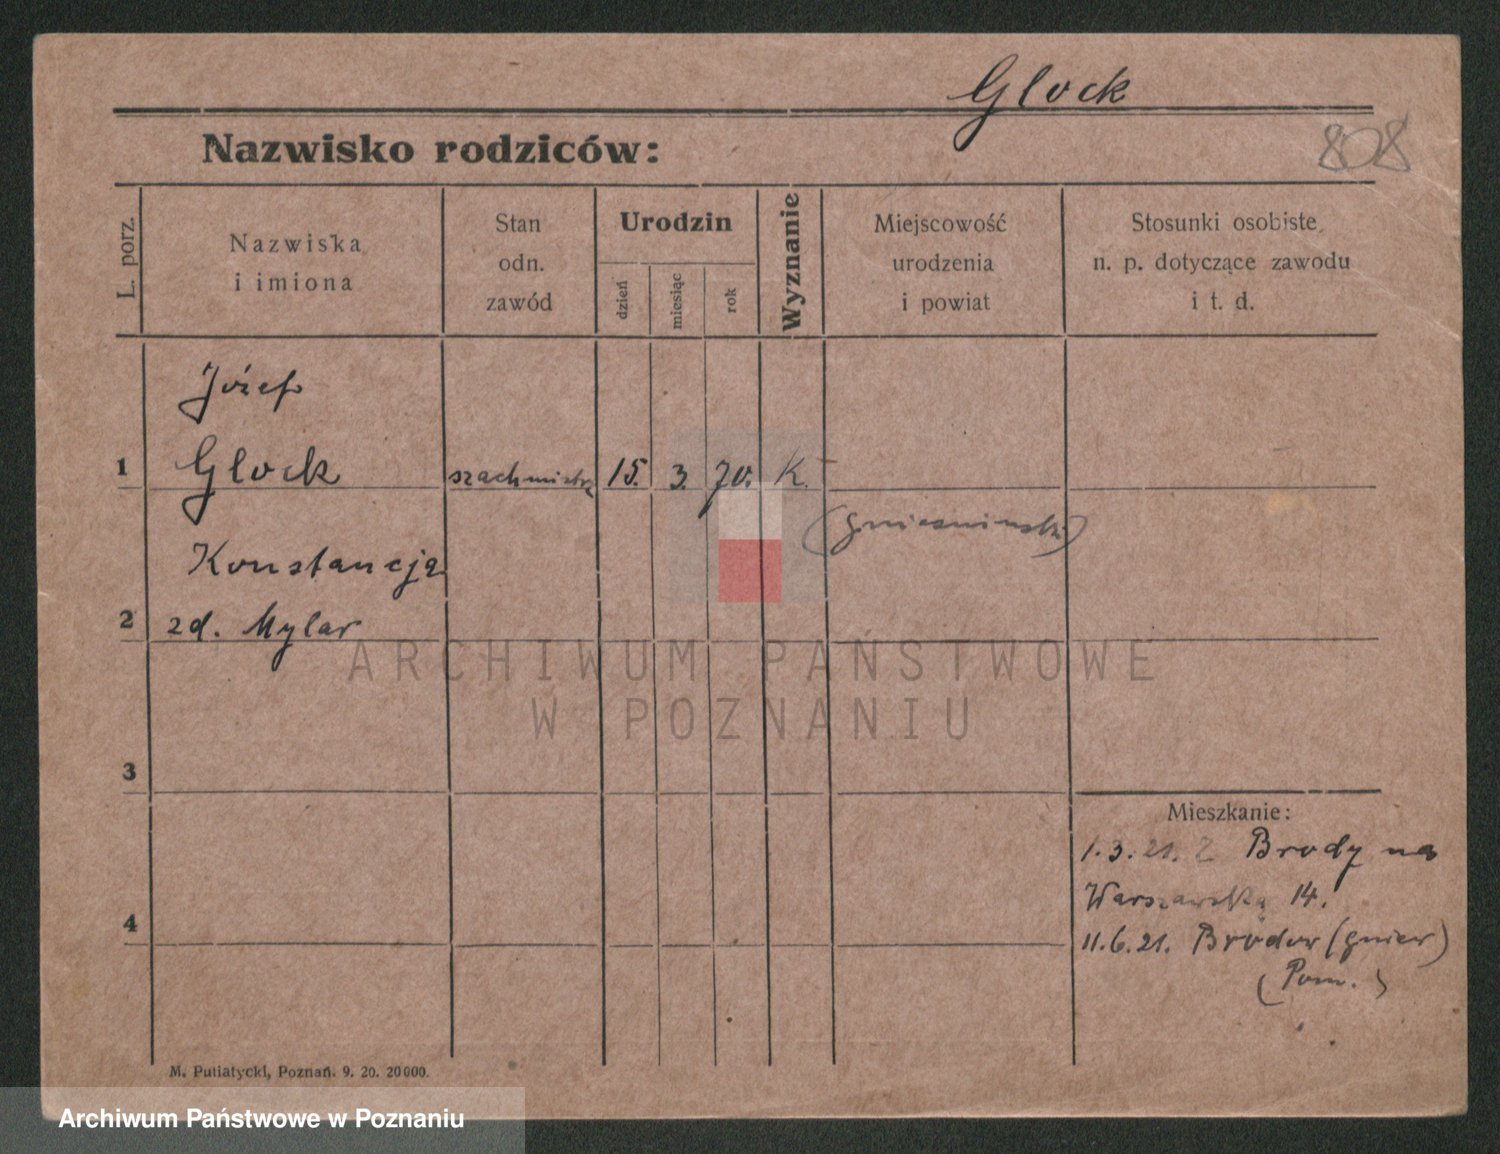 Glock
808
Nazwisko rodziców:
L. porz.
Nazwiska
i imiona
Stan
odn.
zawód
Urodzin
dzień
miesiąc
rok
Wyznanie
Miejscowość
urodzenia
i powiat
Stosunki osobiste
n. p. dotyczące zawodu
i t. d.
Józef
1 Glock szachmistrz 15. 3. 70. K.
(gnieźnieński)
Konstancja
2 zd. Mylar
ARCHIWUM PAŃSTWOWE
W POZNANIU
3
Mieszkanie:
1.3.21. Z Brody na
Warszawską 14.
4
11.6.21. Bródów (gniew)
(Pom.)
M. Putiatycki, Poznań. 9. 20. 20000.
Archiwum Państwowe w Poznaniu